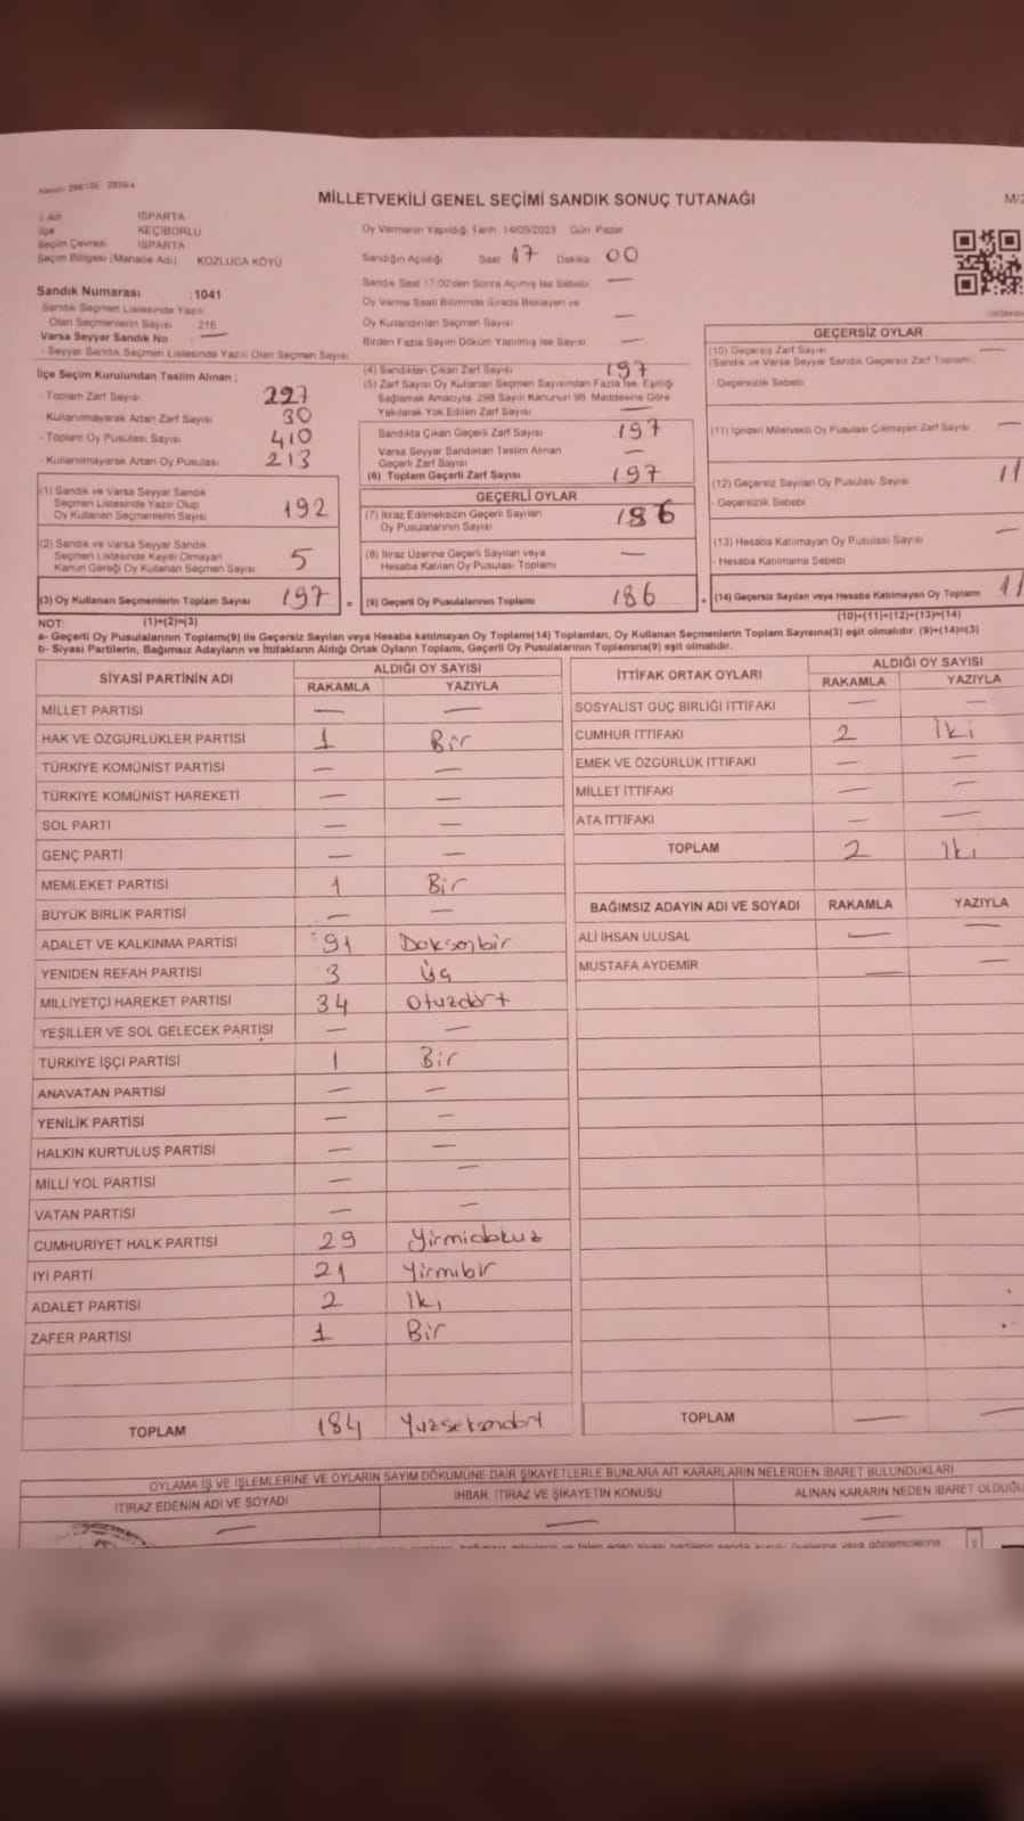 MİLLETVEKİLİ GENEL SEÇİMİ SANDIK SONUÇ TUTANAĞI
M/2
ISPARTA
İlçe KEÇİBORLU
Seçim Çevresi ISPARTA
Seçim Bölgesi (Mahalle Adı) KOZLUCA KÖYÜ
Sandık Numarası : 1041
Sandık Seçmen Listesinde Yazılı
Olan Seçmenlerin Sayısı 216
Varsa Seyyar Sandık No —
- Seyyar Sandık Seçmen Listesinde Yazılı Olan Seçmen Sayısı
Oy Vermenin Yapıldığı Tarih 14/05/2023 Gün Pazar
Sandığın Açıldığı Saat 17 Dakika 00
Sandık Saat 17:00'den Sonra Açılmış İse Sebebi —
Oy Verme Saati Bitiminde Sırada Bekleyen ve
Oy Kullandırılan Seçmen Sayısı —
Birden Fazla Sayım Döküm Yapılmış İse Sayısı —
İlçe Seçim Kurulundan Teslim Alınan :
- Toplam Zarf Sayısı 227
- Kullanılmayarak Artan Zarf Sayısı 30
- Toplam Oy Pusulası Sayısı 410
- Kullanılmayarak Artan Oy Pusulası 213
(1) Sandık ve Varsa Seyyar Sandık
Seçmen Listesinde Yazılı Olup
Oy Kullanan Seçmenlerin Sayısı 192
(2) Sandık ve Varsa Seyyar Sandık
Seçmen Listesinde Kayıtlı Olmayan
Kanun Gereği Oy Kullanan Seçmen Sayısı 5
(3) Oy Kullanan Seçmenlerin Toplam Sayısı 197 =
(4) Sandıktan Çıkan Zarf Sayısı 197
(5) Zarf Sayısı Oy Kullanan Seçmen Sayısından Fazla İse, Eşitliği
Sağlamak Amacıyla, 298 Sayılı Kanunun 98. Maddesine Göre
Yakılarak Yok Edilen Zarf Sayısı —
Sandıkta Çıkan Geçerli Zarf Sayısı 197
Varsa Seyyar Sandıktan Teslim Alınan
Geçerli Zarf Sayısı —
(6) Toplam Geçerli Zarf Sayısı 197
GEÇERLİ OYLAR
(7) İtiraz Edilmeksizin Geçerli Sayılan
Oy Pusulalarının Sayısı 186
(8) İtiraz Üzerine Geçerli Sayılan veya
Hesaba Katılan Oy Pusulası Toplamı —
(9) Geçerli Oy Pusulalarının Toplamı 186 +
GEÇERSİZ OYLAR
(10) Geçersiz Zarf Sayısı —
(Sandık ve Varsa Seyyar Sandık Geçersiz Zarf Toplamı)
- Geçersizlik Sebebi
(11) İçinden Milletvekili Oy Pusulası Çıkmayan Zarf Sayısı —
(12) Geçersiz Sayılan Oy Pusulası Sayısı 11
- Geçersizlik Sebebi
(13) Hesaba Katılmayan Oy Pusulası Sayısı —
- Hesaba Katılmama Sebebi
(14) Geçersiz Sayılan veya Hesaba Katılmayan Oy Toplamı 11
NOT: (1)+(2)=(3) (10)+(11)+(12)+(13)=(14)
a- Geçerli Oy Pusulalarının Toplamı(9) ile Geçersiz Sayılan veya Hesaba katılmayan Oy Toplamı(14) Toplamları, Oy Kullanan Seçmenlerin Toplam Sayısına(3) eşit olmalıdır. (9)+(14)=(3)
b- Siyasi Partilerin, Bağımsız Adayların ve İttifakların Aldığı Ortak Oyların Toplamı, Geçerli Oy Pusulalarının Toplamına(9) eşit olmalıdır.
SİYASİ PARTİNİN ADI ALDIĞI OY SAYISI
RAKAMLA YAZIYLA
MİLLET PARTİSİ — —
HAK VE ÖZGÜRLÜKLER PARTİSİ 1 Bir
TÜRKİYE KOMÜNİST PARTİSİ — —
TÜRKİYE KOMÜNİST HAREKETİ — —
SOL PARTİ — —
GENÇ PARTİ — —
MEMLEKET PARTİSİ 1 Bir
BÜYÜK BİRLİK PARTİSİ — —
ADALET VE KALKINMA PARTİSİ 91 Doksanbir
YENİDEN REFAH PARTİSİ 3 Üç
MİLLİYETÇİ HAREKET PARTİSİ 34 Otuzdört
YEŞİLLER VE SOL GELECEK PARTİSİ — —
TÜRKİYE İŞÇİ PARTİSİ 1 Bir
ANAVATAN PARTİSİ — —
YENİLİK PARTİSİ — —
HALKIN KURTULUŞ PARTİSİ — —
MİLLİ YOL PARTİSİ — —
VATAN PARTİSİ — —
CUMHURİYET HALK PARTİSİ 29 Yirmidokuz
İYİ PARTİ 21 Yirmibir
ADALET PARTİSİ 2 İki
ZAFER PARTİSİ 1 Bir
TOPLAM 184 Yüzseksendört
İTTİFAK ORTAK OYLARI ALDIĞI OY SAYISI
RAKAMLA YAZIYLA
SOSYALİST GÜÇ BİRLİĞİ İTTİFAKI — —
CUMHUR İTTİFAKI 2 İki
EMEK VE ÖZGÜRLÜK İTTİFAKI — —
MİLLET İTTİFAKI — —
ATA İTTİFAKI — —
TOPLAM 2 İki
BAĞIMSIZ ADAYIN ADI VE SOYADI RAKAMLA YAZIYLA
ALİ İHSAN ULUSAL — —
MUSTAFA AYDEMİR — —
TOPLAM — —
OYLAMA İŞ VE İŞLEMLERİNE VE OYLARIN SAYIM DÖKÜMÜNE DAİR ŞİKAYETLERLE BUNLARA AİT KARARLARIN NELERDEN İBARET BULUNDUKLARI
İTİRAZ EDENİN ADI VE SOYADI İHBAR, İTİRAZ VE ŞİKAYETİN KONUSU ALINAN KARARIN NEDEN İBARET OLDUĞU
— — —